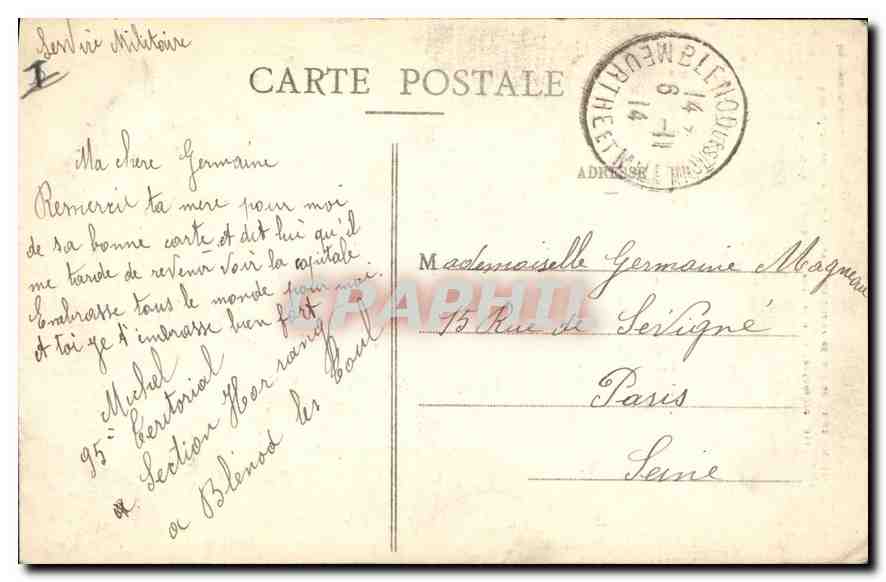 Servire Militaire
CARTE POSTALE
BLENOD LES TOUL
MEURTHE ET MLLE
14 *
6 - 11
14
ADRESSE
Ma chere Germaine
Remercit ta mere pour moi
de sa bonne carte, et dit lui qu'il
me tarde de revenir voir la capitale
Embrasse tous le monde pour moi.
et toi je t'embrasse bien fort
Michel
95e Teritorial
Section Hor rang
a Blénod les Toul
Mademoiselle Germaine Magneau
15 Rue de Sévigné
Paris
Seine
CPAPHIL